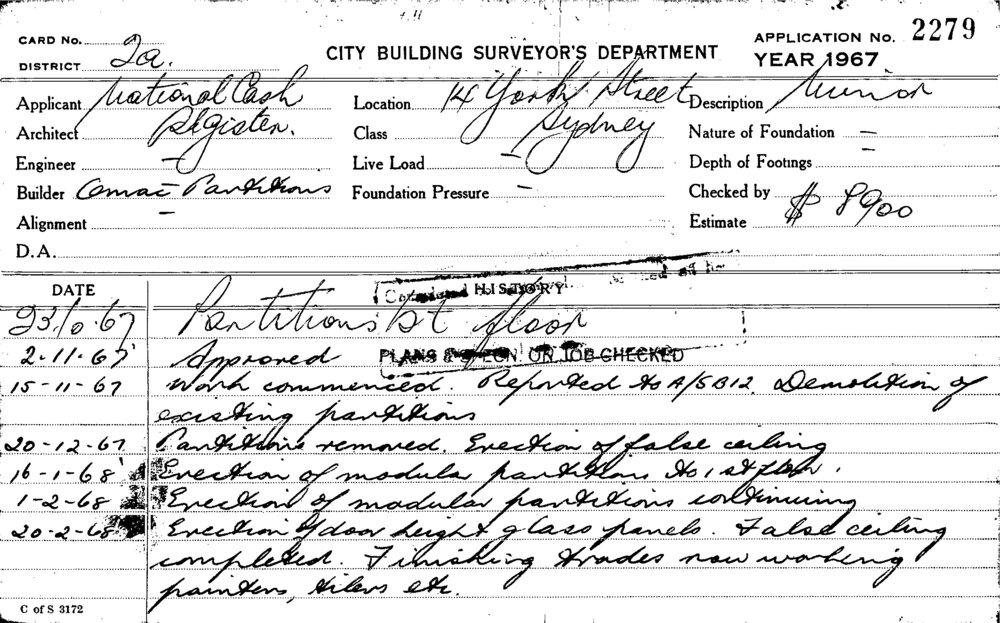 CARD No.
DISTRICT 2a.
CITY BUILDING SURVEYOR'S DEPARTMENT
APPLICATION No. 2279
YEAR 1967
Applicant National Cash
Architect Register.
Engineer –
Builder Omac Partitions
Alignment –
D.A.
Location 14 York Street
Class Sydney
Live Load –
Foundation Pressure –
Description Minor
Nature of Foundation –
Depth of Footings –
Checked by
Estimate $ 8900
DATE HISTORY
23.10.67 Partitions 1st floor
2-11-67 Approved
PLANS & SPECN. ON JOB CHECKED
15-11-67 Work commenced. Reported to A/SB12. Demolition of
existing partitions
20-12-67 Partitions removed. Erection of false ceiling
16-1-68 Erection of modular partitions to 1st floor.
1-2-68 Erection of modular partitions continuing
20-2-68 Erection of door height glass panels. False ceiling
completed. Finishing trades now working
painters, tilers etc.
C of S 3172